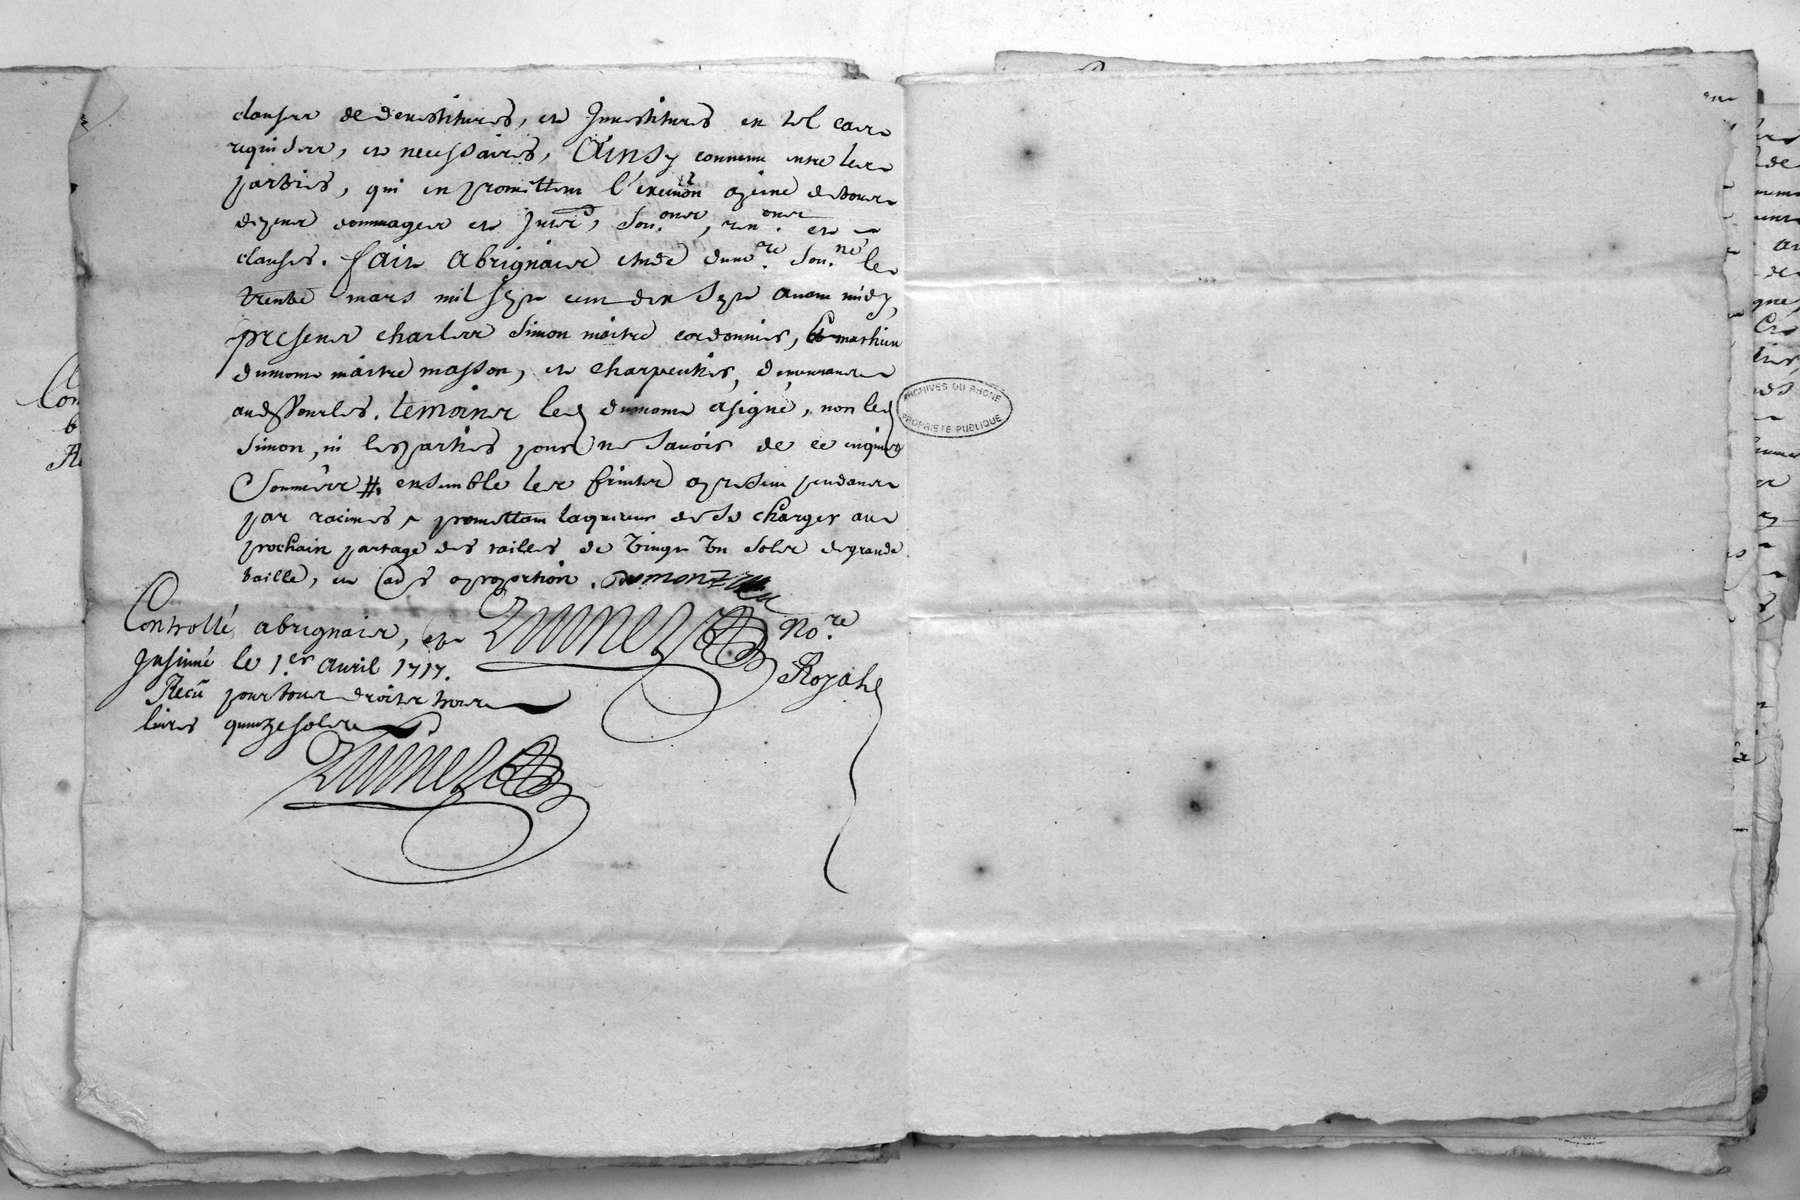 clauses de devestitures, et Investitures en tel cas
requises, et necessaires, Ainsy convenu entre les
parties, qui en promettent l'execuõn apeine detous
depens dommages et Inter^s, Sou.^ons, ren.^ons et
clauses. fait abrignais etude dune.^re Sou.^né le
trente mars mil sept cent dix sept avant midy,
presens charles simon maitre cordonnier, et mathieu
dumont maitre masson, et charpentier, demeurans
temoins led dumont asigné, non led
simon, ni lesparties pour ne savoir de ce enquis
Sommés #. ensemble les fruits apresent pendans
par racines, promettant laquereur dese charger au
prochain partage des tailles de vingt un sols degrande
taille, et aproportion. Dumont
Controllé abrignais, et No.^re
Insinué le 1.^er avril 1717. Royal
Recü pourtous droits trois
livres quinzesols
ARCHIVES DU RHONE
PROPRIETE PUBLIQUE